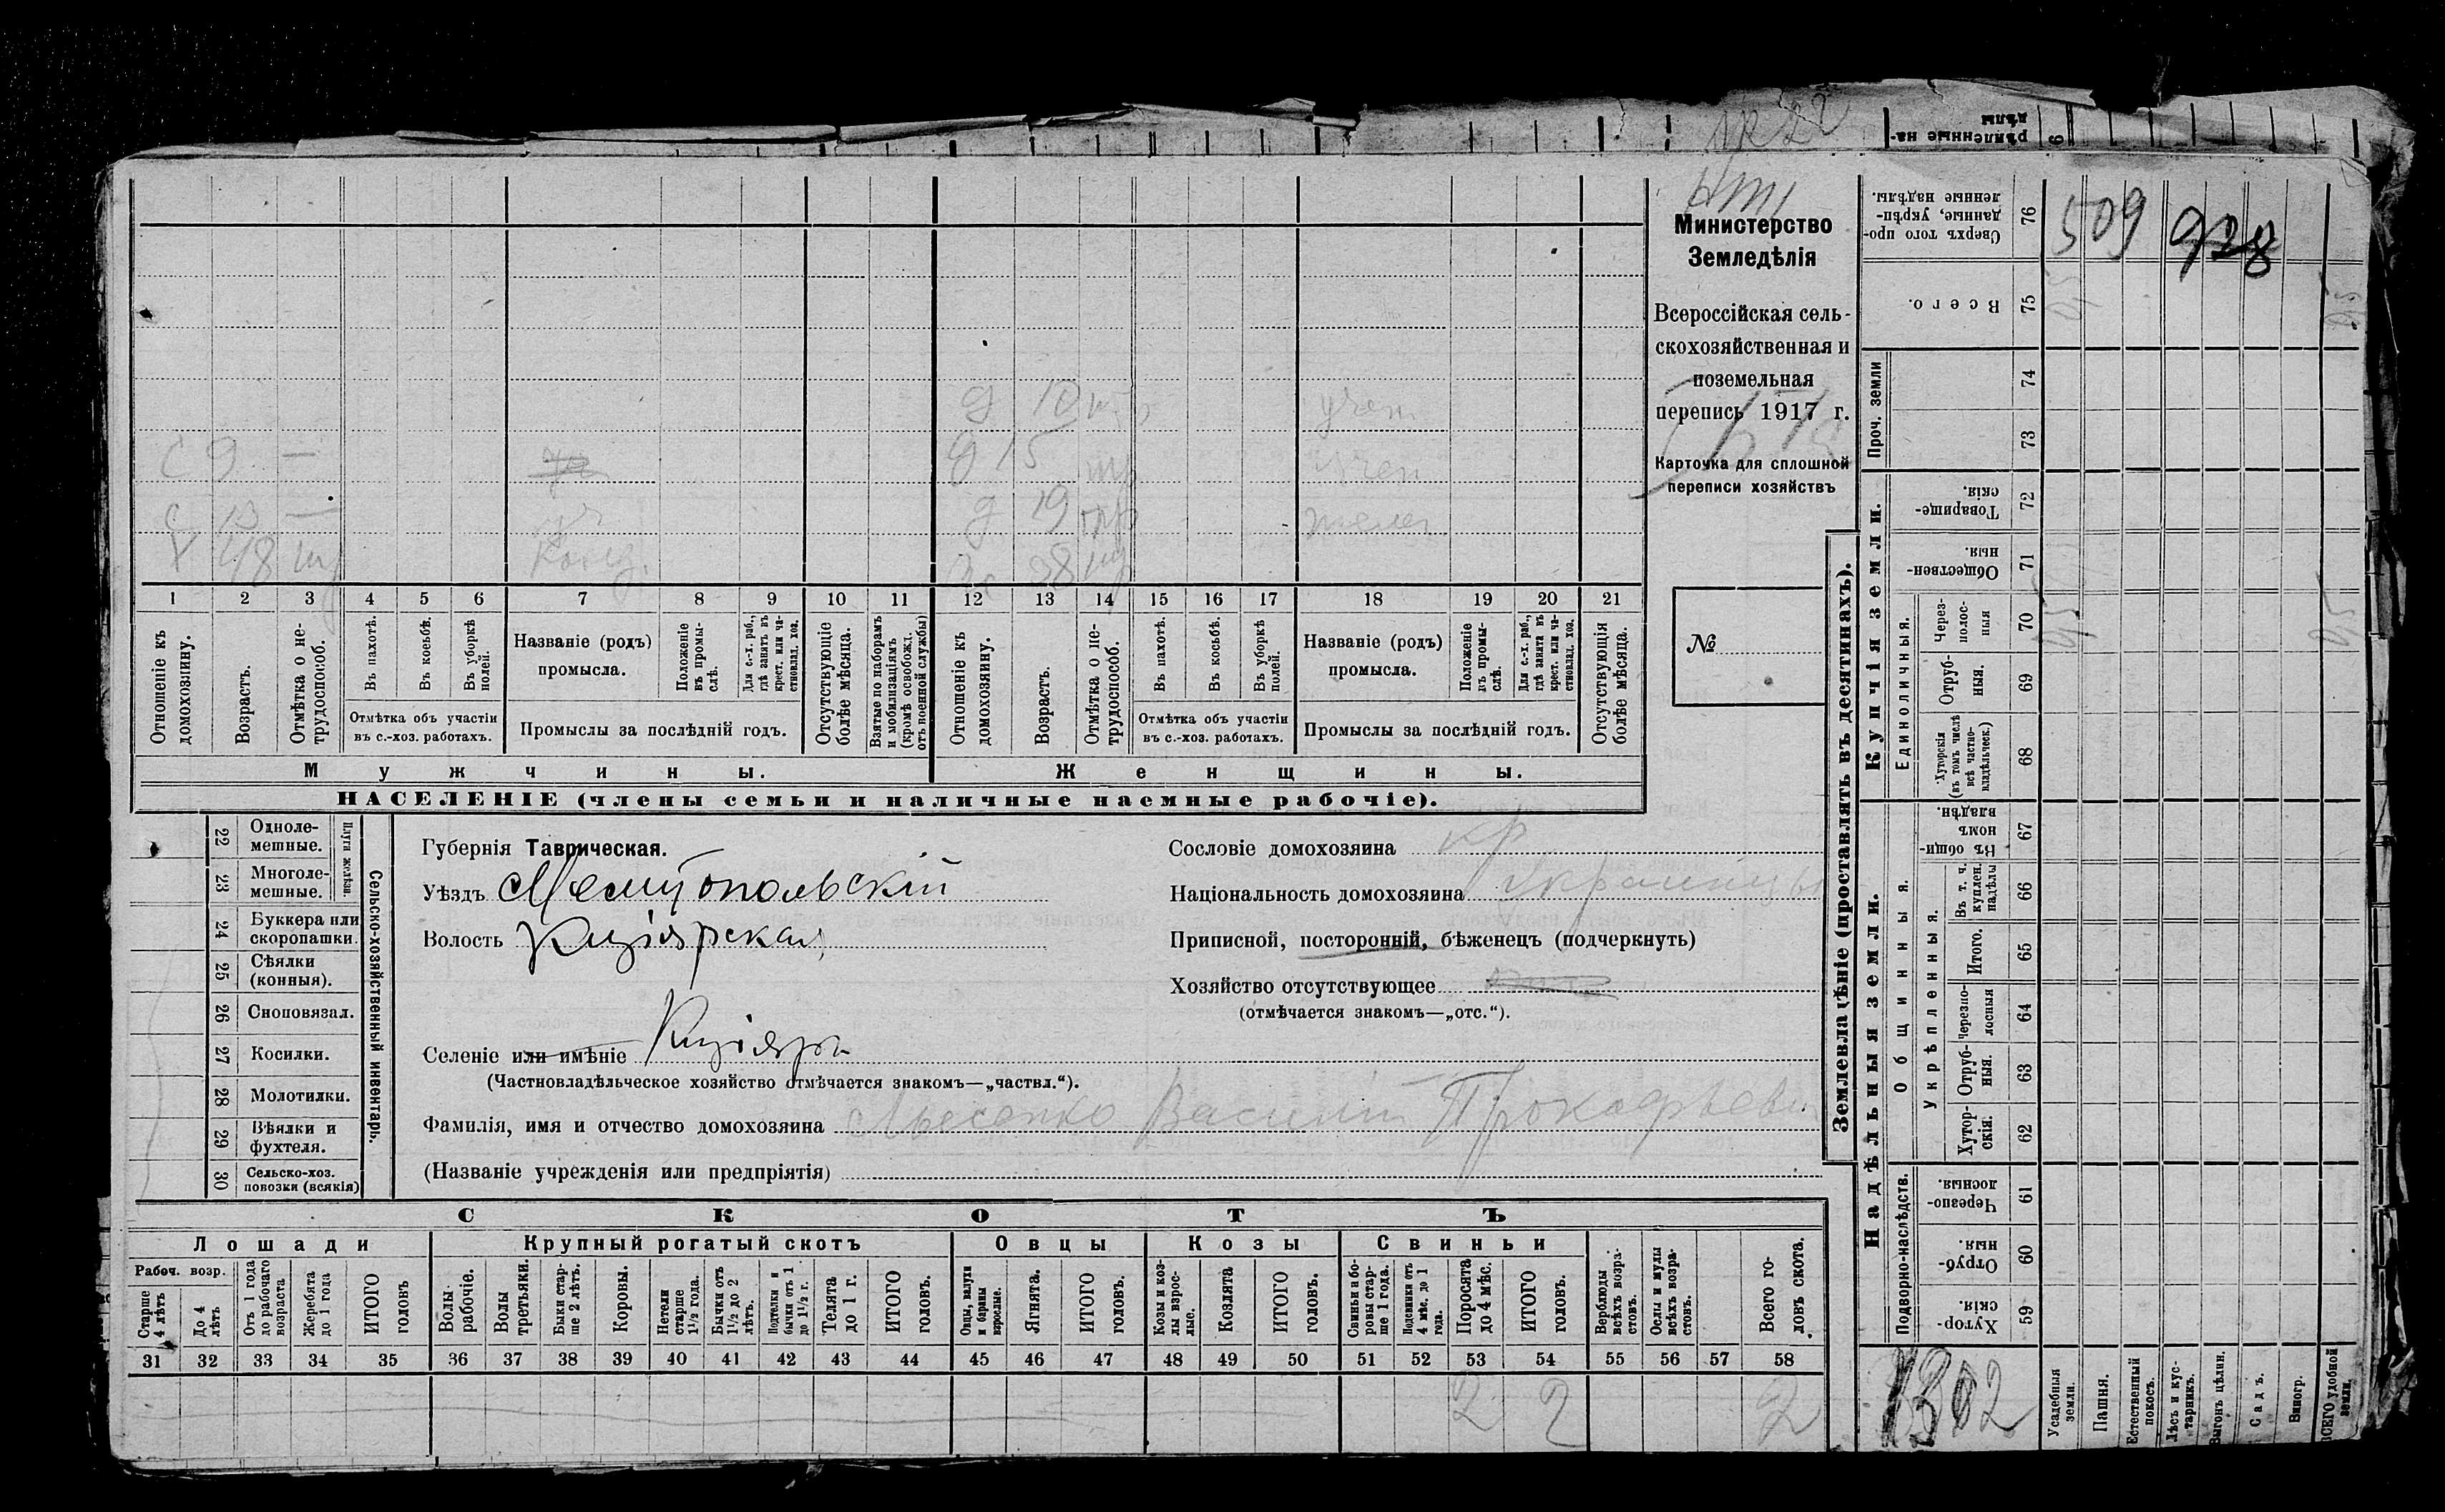 509
928
Министерство
Земледѣлія
Всероссійская сель-
скохозяйственная и
поземельная
перепись 1917 г.
Карточка для сплошной
переписи хозяйствъ
№
д 10 учен
С 9 — д 15 учен
С 13 — уч д 19
Х 48 38
1 2 3 4 5 6 7 8 9 10 11 12 13 14 15 16 17 18 19 20 21
Отношеніе къ домохозяину.
Возрастъ.
Отмѣтка о не-трудоспособ.
Въ пахотѣ.
Въ косьбѣ.
Въ уборкѣ полей.
Отмѣтка объ участіи
въ с.-хоз. работахъ.
Названіе (родъ)
промысла.
Положеніе въ промы-слѣ.
Для с.-х. раб., гдѣ занятъ въ крест. или ча-стновлад. хоз.
Промыслы за послѣдній годъ.
Отсутствующіе болѣе мѣсяца.
Взятые по наборамъ и мобилизаціямъ (кромѣ освобожд. отъ военной службы)
Отношеніе къ домохозяину.
Возрастъ.
Отмѣтка о не-трудоспособ.
Въ пахотѣ.
Въ косьбѣ.
Въ уборкѣ полей.
Отмѣтка объ участіи
въ с.-хоз. работахъ.
Названіе (родъ)
промысла.
Положеніе въ промы-слѣ.
Для с.-х. раб., гдѣ занята въ крест. или ча-стновлад. хоз.
Промыслы за послѣдній годъ.
Отсутствующія болѣе мѣсяца.
Мужчины. Женщины.
НАСЕЛЕНІЕ (члены семьи и наличные наемные рабочіе).
Сельско-хозяйственный инвентарь.
Плуги желѣзн.
22 Одноле-мешные.
23 Многоле-мешные.
24 Буккера или скоропашки.
25 Сѣялки (конныя).
26 Сноповязал.
27 Косилки.
28 Молотилки.
29 Вѣялки и фухтеля.
30 Сельско-хоз. повозки (всякія)
Губернія Таврическая.
Уѣздъ Мелитопольскій
Волость Кизіярская
Селеніе или имѣніе Кизіяръ
(Частновладѣльческое хозяйство отмѣчается знакомъ—„частвл.“).
Фамилія, имя и отчество домохозяина Василій Прокофьевъ
(Названіе учрежденія или предпріятія)
Сословіе домохозяина кр
Національность домохозяина Украинецъ
Приписной, посторонній, бѣженецъ (подчеркнуть)
Хозяйство отсутствующее
(отмѣчается знакомъ—„отс.“).
СКОТЪ
Лошади Крупный рогатый скотъ Овцы Козы Свиньи
Рабоч. возр.
Старше 4 лѣтъ
До 4 лѣтъ
Отъ 1 года до рабочаго возраста
Жеребята до 1 года
ИТОГО головъ
Волы рабочіе.
Волы третьяки.
Быки стар-ше 2 лѣтъ.
Коровы.
Нетели старше 1½ года.
Бычки отъ 1½ до 2 лѣтъ.
Подтелки и бычки отъ 1 до 1½ г.
Телята до 1 г.
ИТОГО головъ.
Овцы, валухи и бараны взрослые.
Ягнята.
ИТОГО головъ.
Козы и коз-лы взрос-лые.
Козлята
ИТОГО головъ.
Свиньи и бо-ровы стар-ше 1 года.
Подсвинки отъ 4 мѣс. до 1 года.
Поросята до 4 мѣс.
ИТОГО головъ.
Верблюды всѣхъ возра-стовъ.
Ослы и мулы всѣхъ возра-стовъ.
Всего го-ловъ скота.
31 32 33 34 35 36 37 38 39 40 41 42 43 44 45 46 47 48 49 50 51 52 53 54 55 56 57 58
2 2 2
Землевладѣніе (проставлять въ десятинахъ).
Проч. земли
Купчія земли.
Единоличныя.
Надѣльныя земли.
Общинныя.
Укрѣпленныя.
Подворно-наслѣдств.
Сверхъ того про-данные, укрѣп-ленные надѣлы. 76
Всего. 75
74
73
Товарище-скія. 72
Обществен-ныя. 71
Через-полос-ныя 70
Отруб-ныя. 69
Хуторскія (въ томъ числѣ всѣ частно-владѣльческ.) 68
Въ общи-номъ владѣн. 67
Въ т. ч. куплен. надѣлы 66
Итого. 65
Черезпо-лосныя 64
Отруб-ныя. 63
Хутор-скія. 62
Черезпо-лосныя. 61
Отруб-ныя. 60
Хутор-скія. 59
Усадебныя земли.
Пашня.
Естественный покосъ.
Лѣсъ и кус-тарникъ.
Выгонъ цѣлин.
Садъ.
Виногр.
ВСЕГО удобной земли.